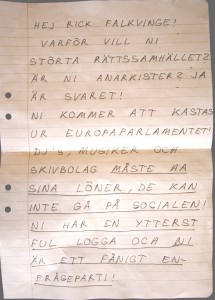 HEJ RICK FALKVINGE!
VARFÖR VILL NI
STÖRTA RÄTTSSAMHÄLLET?
ÄR NI ANARKISTER? JA
ÄR SVARET!
NI KOMMER ATT KASTAS
UR EUROPAPARLAMENTET!
DJ'S, MUSIKER OCH
SKIVBOLAG MÅSTE HA
SINA LÖNER, DE KAN
INTE GÅ PÅ SOCIALEN!
NI HAR EN YTTERST
FUL LOGGA OCH NI
ÄR ETT FÅNIGT EN-
FRÅGEPARTI!